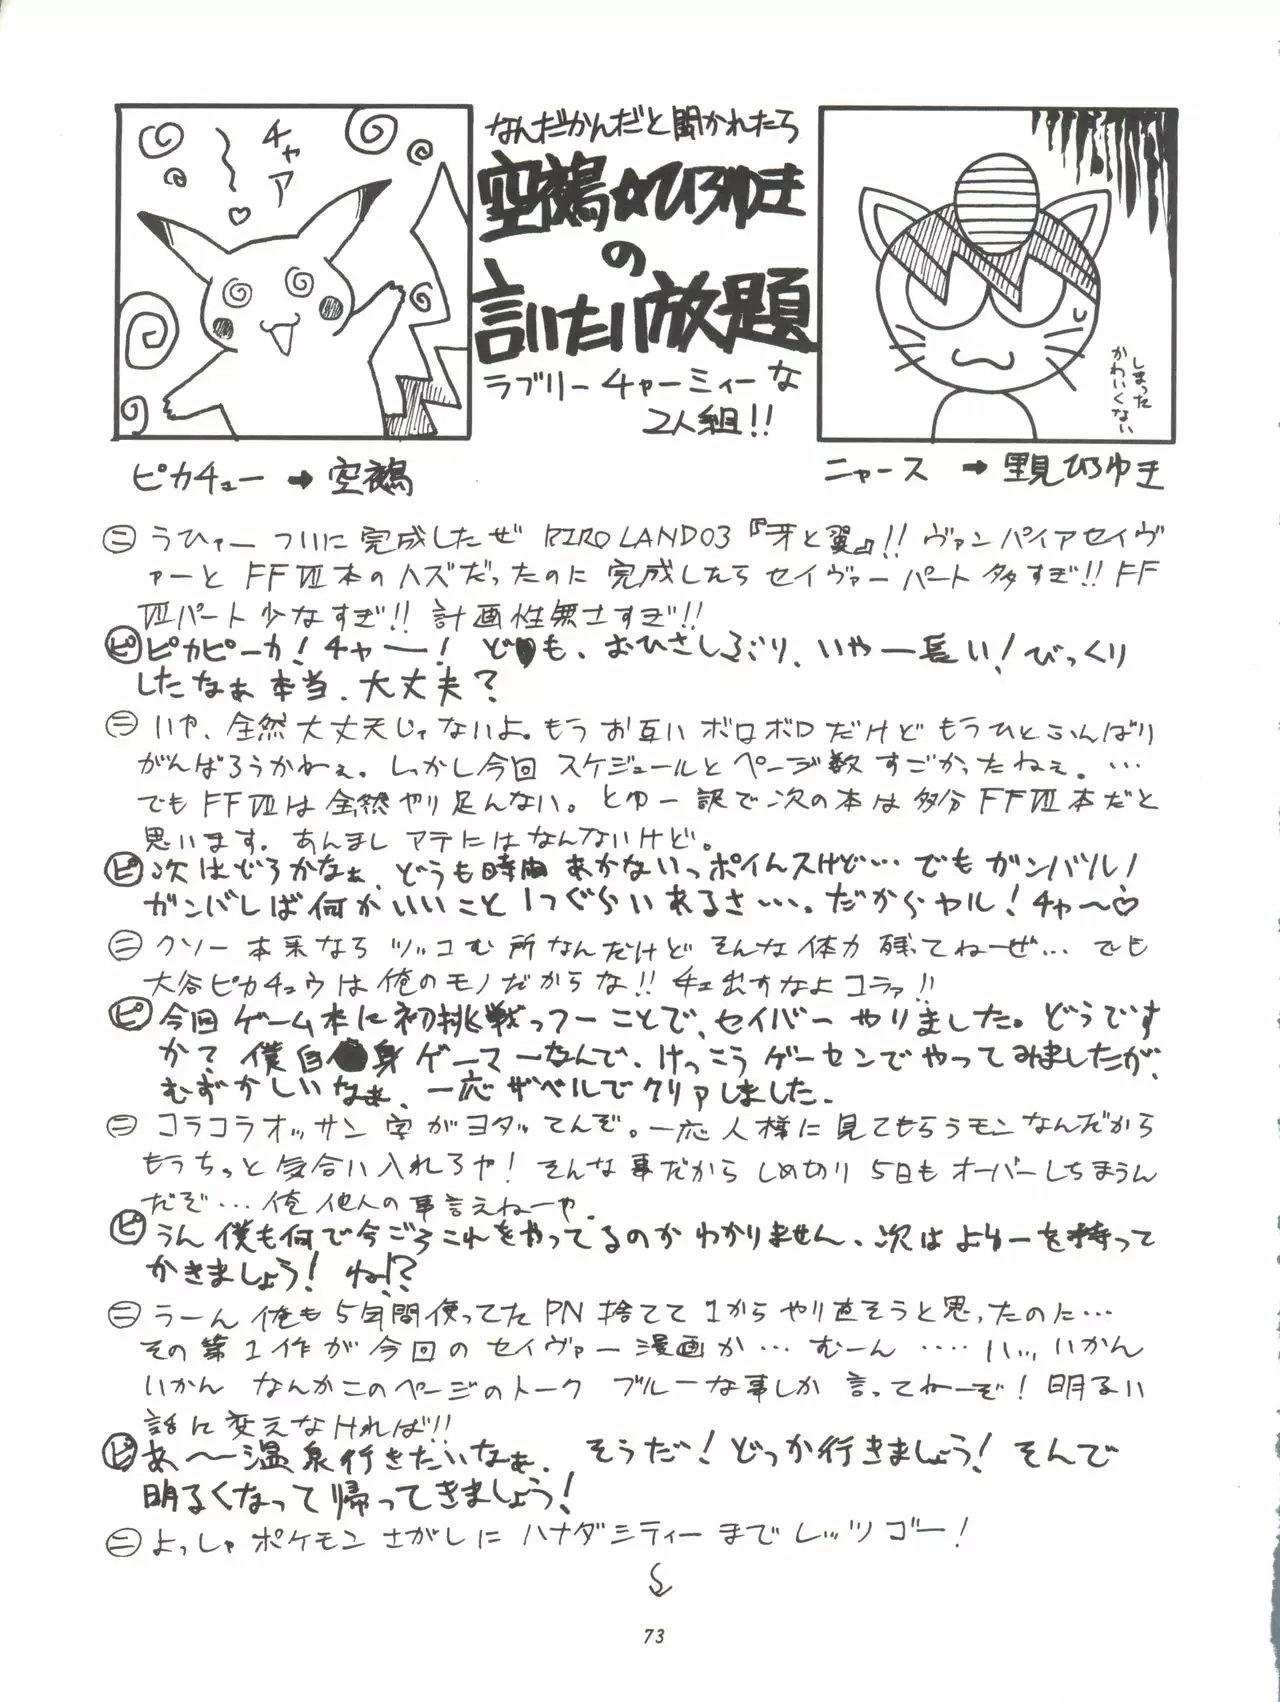 チャア～♡
なんだかんだと聞かれたら
空鵺☆ひろゆき
の
言いたい放題
ラブリーチャーミィーな
2人組!!
しまった
かわいくない
ピカチュー→空鵺
ニャース→里見ひろゆき
㊁うひゃー ついに完成したぜ RIROLAND03『牙と翼』!! ヴァンパイアセイヴ
ァーとFFⅦ本のハズだったのに完成したらセイヴァーパート多すぎ!! FF
Ⅶパート少なすぎ!! 計画性無さすぎ!!
ピ ピカピーカ!チャー! ども、おひさしぶり、いやー長い!びっくり
したなぁ本当、大丈夫?
㊁いや、全然大丈夫じゃないよ。もうお互いボロボロだけどもうひとふんばり
がんばろうかねぇ。しっかし今回スケジュールとページ数すごかったねぇ。…
でもFFⅦは全然やり足んない。とゆー訳で次の本は多分FFⅦ本だと
思います。あんましアテにはなんないけど。
ピ 次はどろかなぁ、どうも時間あかないっポイんスけど…でもガンバツル!
ガンバレば何かいいこと1つぐらいれるさ…。だからヤル!チャ～♡
㊁クソー本来ならツッコむ所なんだけどそんな体力残ってねーぜ…でも
大谷ピカチュウは俺のモノだからな!! チェ出すなよコラァ!!
ピ 今回ゲーム本に初挑戦っつーことで、セイバーやりました。どうです
か? 僕自身ゲーマーなんで、けっこうゲーセンでやってみましたが、
むずかしいなぁ、一応ザベルでクリアしました。
㊁コラコラオッサン字がヨタってんぞ。一応人様に見てもらうモンなんだから
もうちっと気合い入れろや! そんな事だからしめ切り5日もオーバーしちまうん
だぞ…俺他人の事言えねーや。
ピ うん僕も何で今ごろこれをやってるのかわかりません、次はよゆーを持って
かきましょう! ね!?
㊁うーん俺も5年間使ってたPN捨てて1からやり直そうと思ったのに…
その第1作が今回のセイヴァー漫画か…むーん ‥‥ハッ、いかん
いかん なんかこのページのトーク ブルーな事しか言ってねーぞ! 明るい
話に変えなければ!!
ピ あ～温泉行きたいなぁ、 そうだ!どっか行きましょう! そんで
明るくなって帰ってきましょう!
㊁よっしゃポケモンさがしにハナダシティーまでレッツゴー!
73